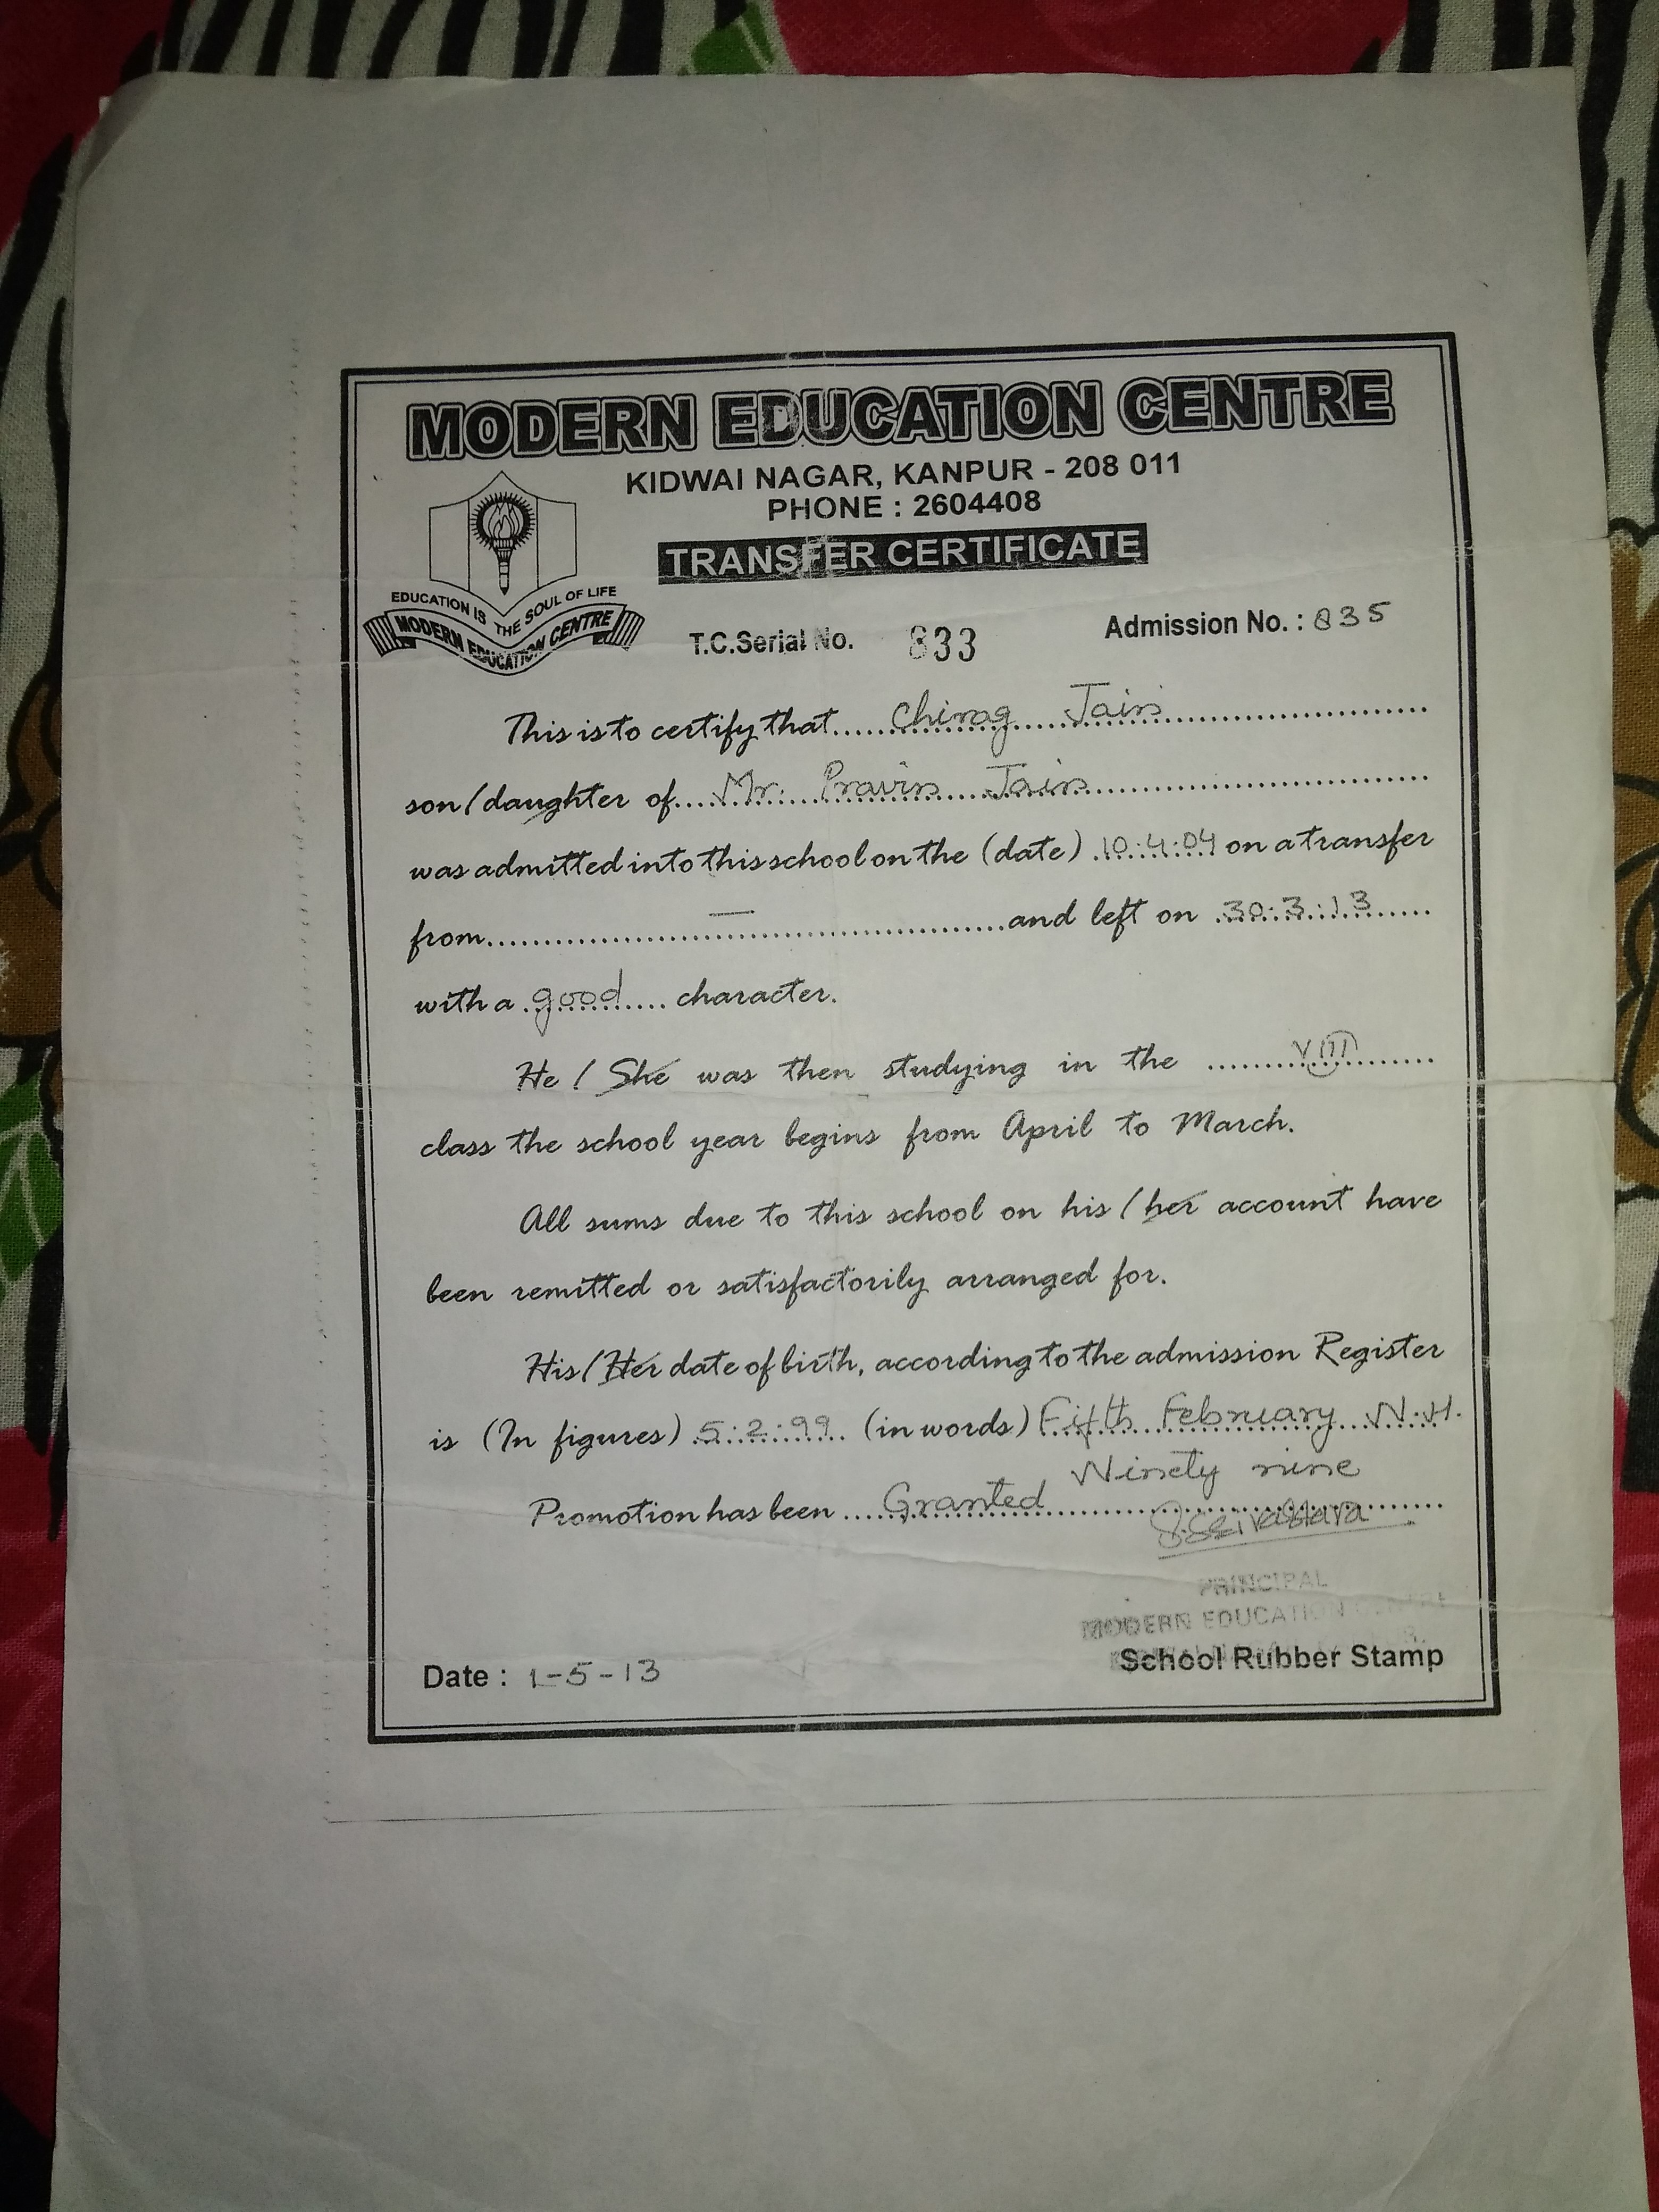 MODERN EDUCATION CENTRE
KIDWAI NAGAR, KANPUR - 208 011
PHONE : 2604408
TRANSFER CERTIFICATE
EDUCATION IS THE SOUL OF LIFE
MODERN EDUCATION CENTRE
T.C.Serial No. 833
Admission No. : 835
This is to certify that..... Chirag Jain
son/daughter of.... Mr. Pravin Jain
was admitted into this school on the (date) 10:4:04 on a transfer
from.......... — ..........and left on 30:3:13
with a good character.
He / She was then studying in the VIII
class the school year begins from April to March.
All sums due to this school on his / her account have
been remitted or satisfactorily arranged for.
His/Her date of birth, according to the admission Register
is (In figures) 5:2:99 (in words) Fifth February N.H.
Ninety nine
Promotion has been ..... Granted
PRINCIPAL
MODERN EDUCATION CENTRE
School Rubber Stamp
Date : 1-5-13